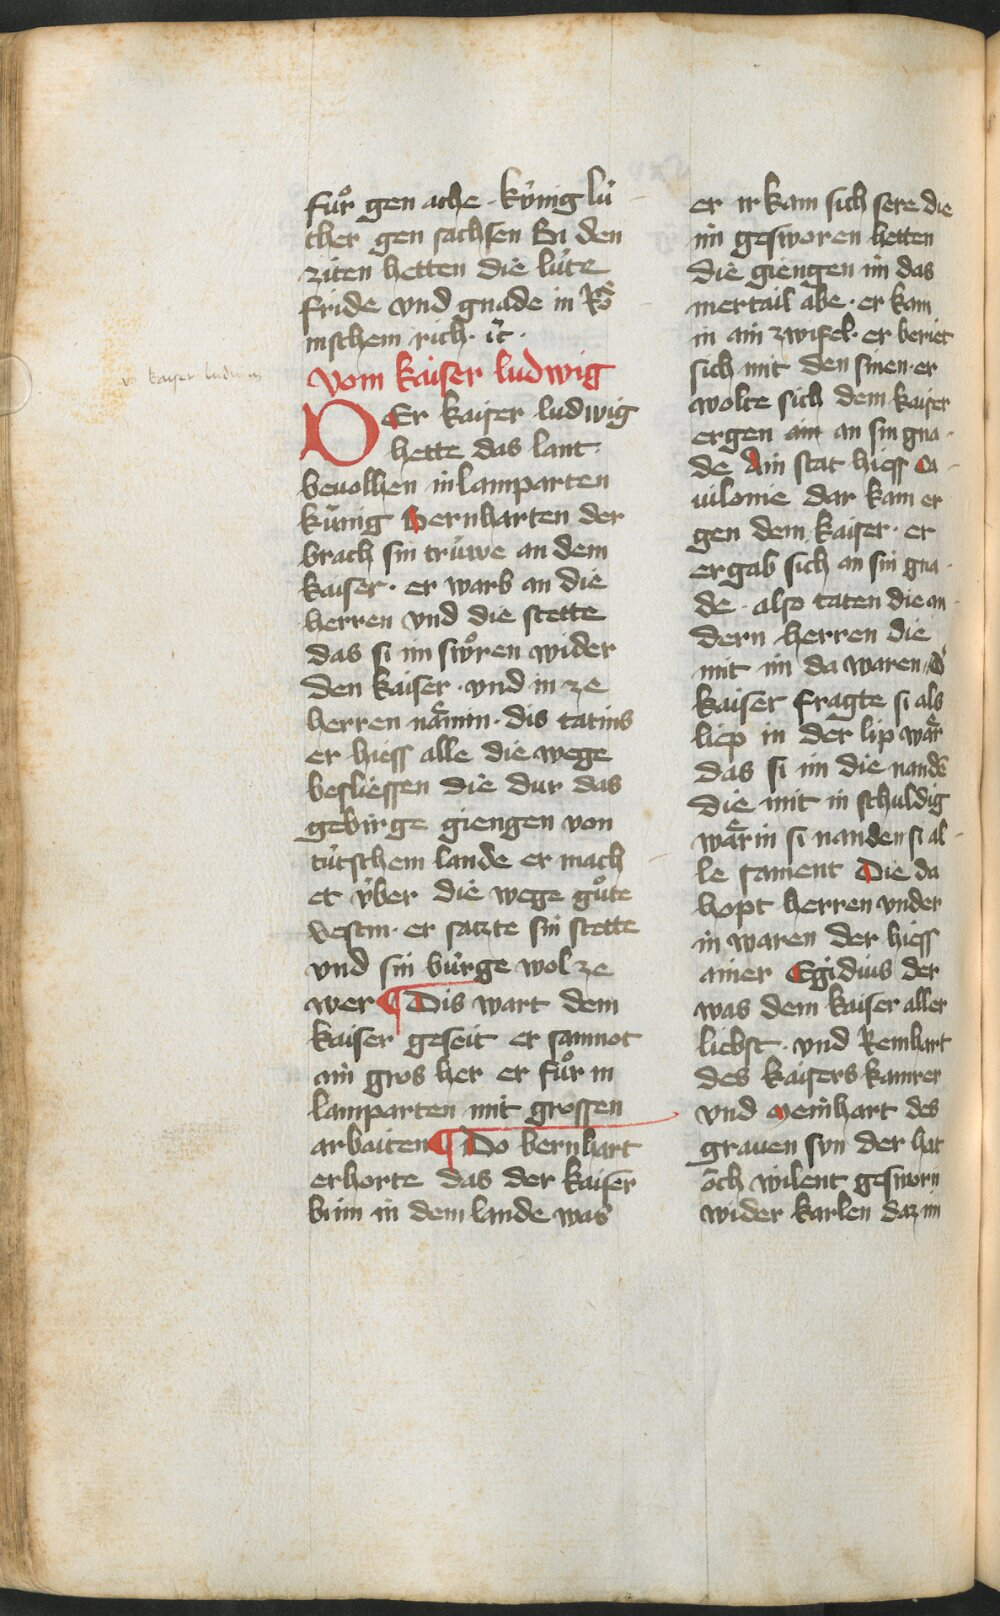 v kayser ludwig
fuͦr gen ache · kv́nig lu̍
ther gen sachsen Bi den
ziten hetten die lu̍te
fride vnd gnade in Roͤ
mschem rich · ꝛc̃ ·
vom kaiser ludwig
DEr kaiser ludwig
hette das lant ·
beuolhen in lamparten
ku̍nig Bernharten der
brach sin tru̍we an dem
kaiser · er warb an die
herren vnd die stette
das si im swoͤren wider
den kaiser · vnd in ze
herren naͤmin · dis tatins
er hiess alle die wege
besliessen die dur das
gebirge giengen von
tu̍tschem lande er mach
et v́ber die wege guͦte
vestin · er satzte sin stette
vnd sin bu̍rge wol ze
wer ¶ Dis wart dem
kaiser geseit er samnot
ain gros her er fuͦr in
lamparten mit grossen
arbaiten ¶ Do bernhart
erhorte das der kaiser
bi im in dem lande was
er ir kam sich sere die
im gesworen hetten
die giengen im das
mertail abe · er kam
in ain zwifel · er beriet
sich mit den sinen · er
wolte sich dem kaiser
ergen ain an sin gna ·
de Ain stat hiess Ca
uilonie dar kam er
gen dem kaiser · er
ergab sich an sin gna ·
de · also taten die an ·
dern herren die
mit im da waren / dʼ
kaiser fragte si als
liep in der lip waͤr
das si im die nandē
die mit in schuldig
waͤrin si nanden si al ·
le sament Die da
hopt herren vnder
in waren der hiess
ainer Egidius der
was dem kaiser aller
liebst · vnd Reinhart
des kaisers kamrer
vnd Meinhart des
grauen sun der hat
och wilent gesworn
wider karlen daz im